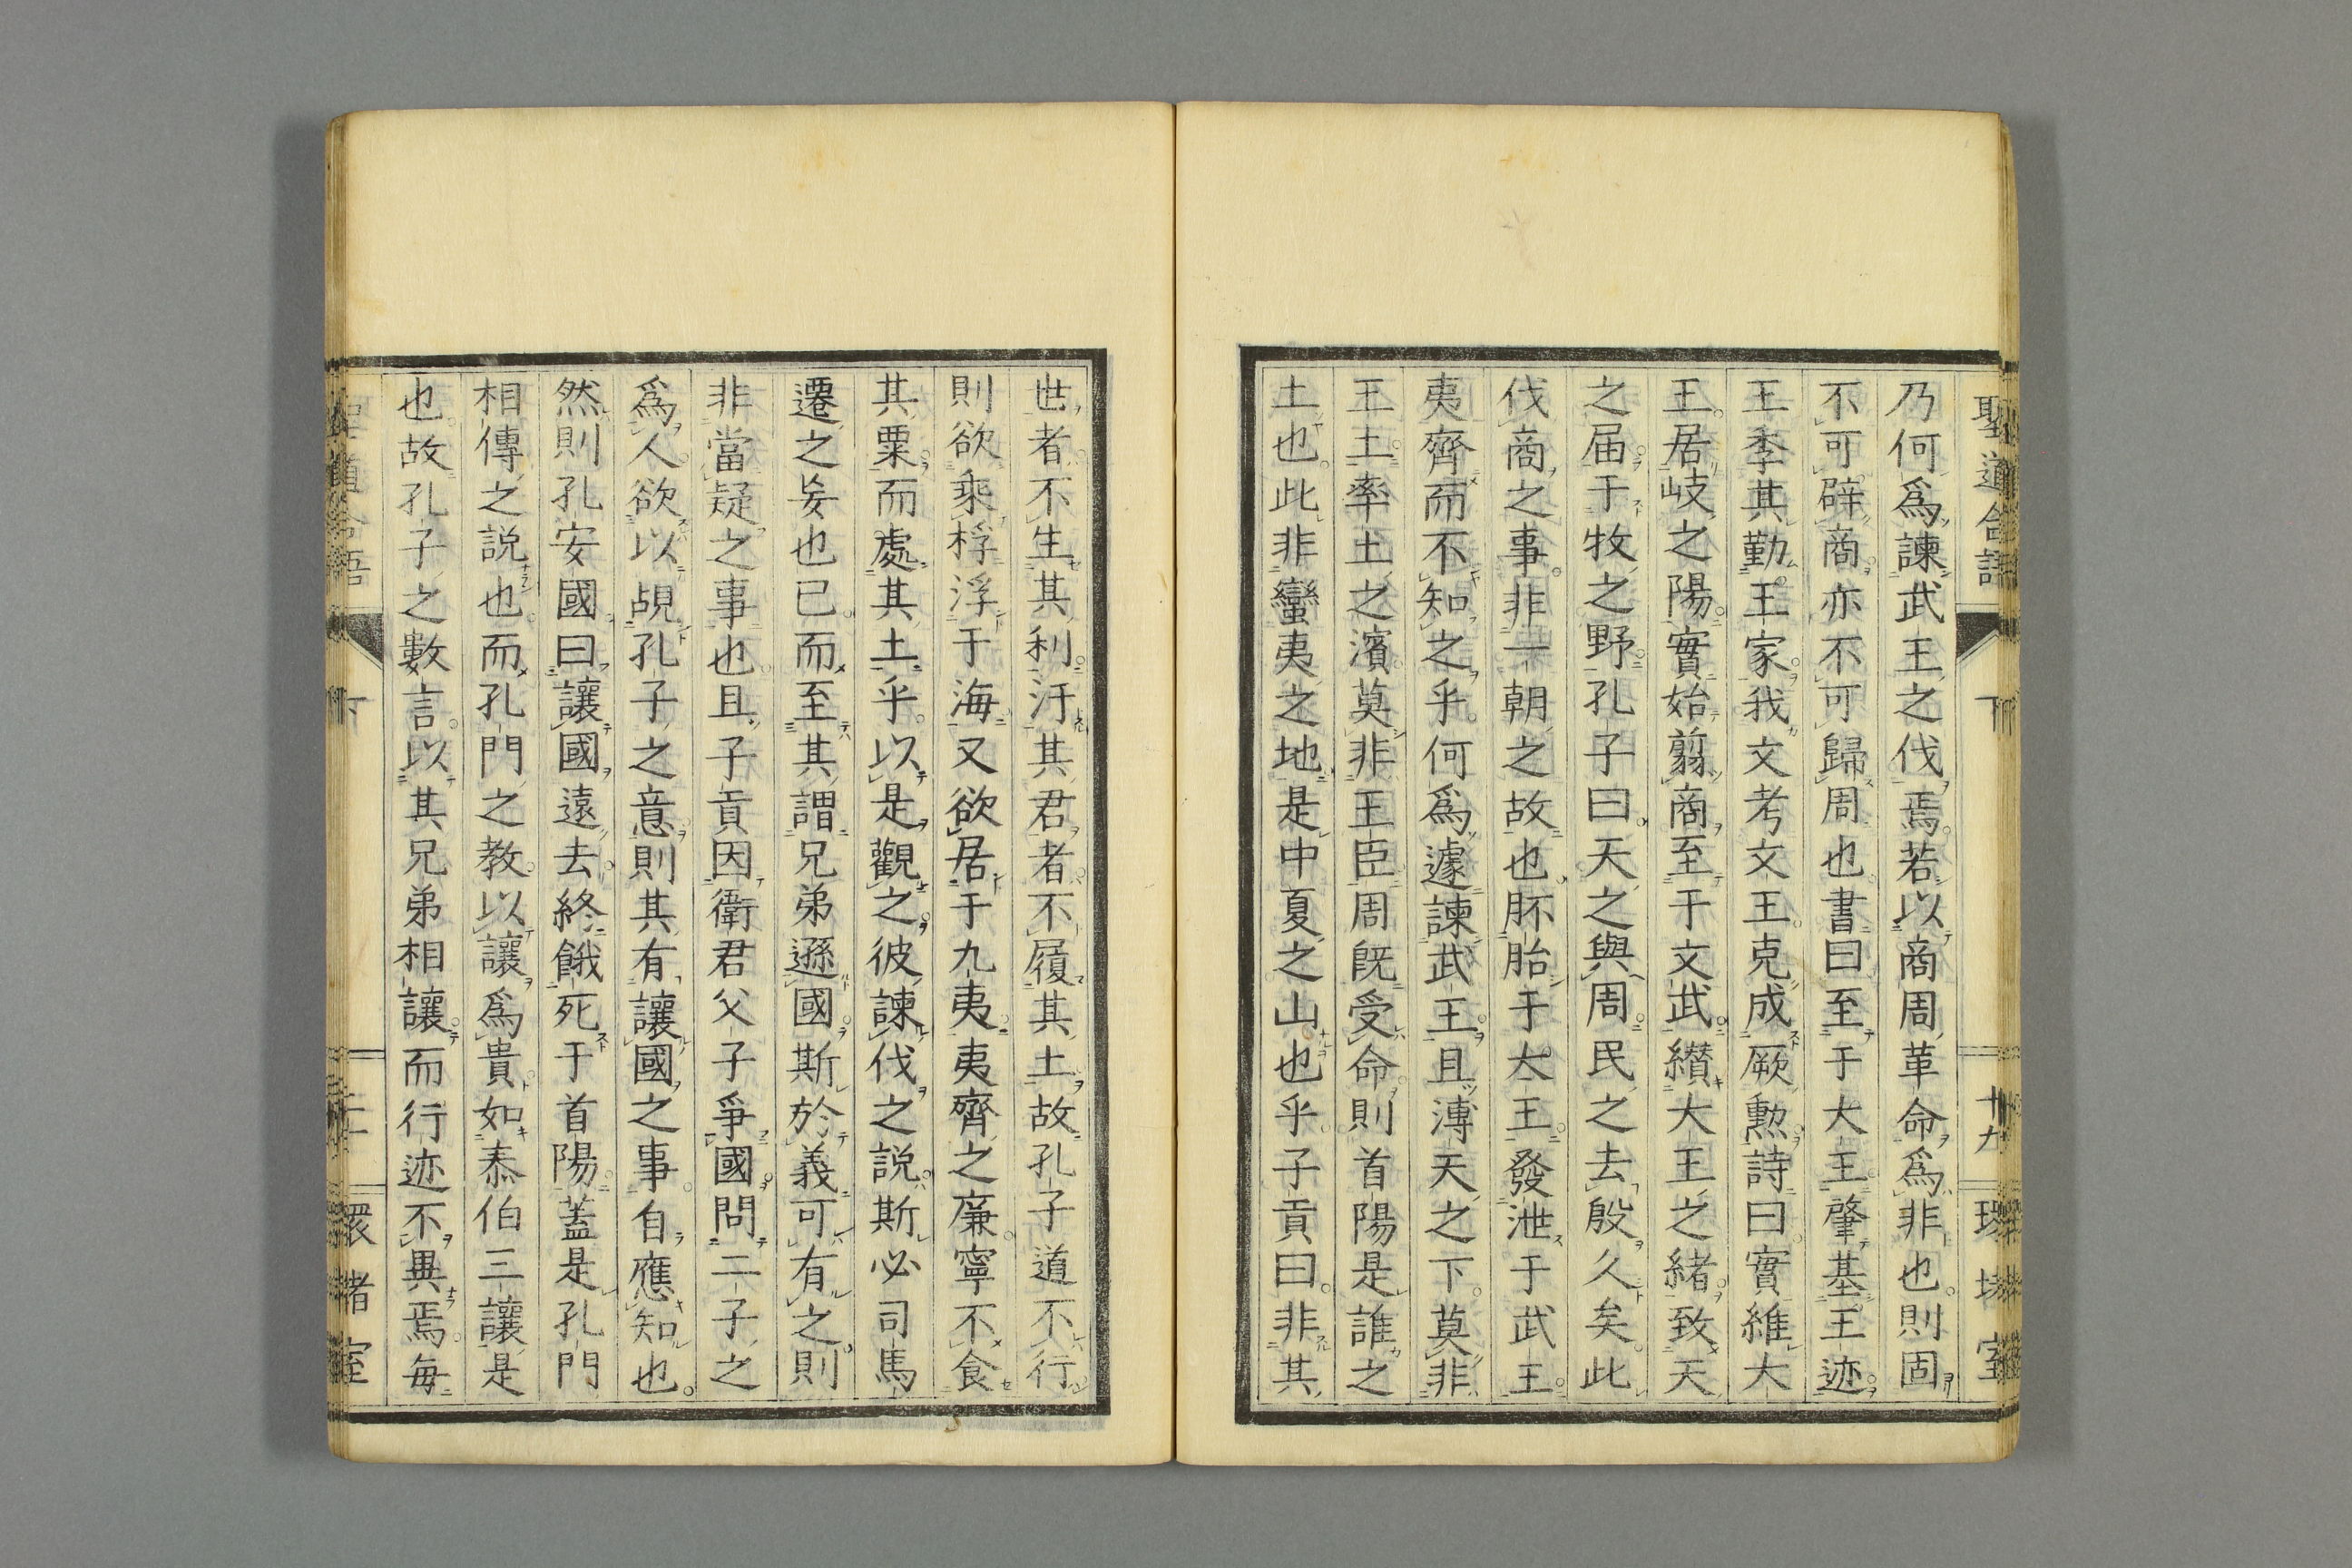 聖道合語 下 十九 環堵室
乃何爲諫武王之伐焉若以商周革命爲非也則固
不可辟商亦不可歸周也書曰至于大王肇基王迹
王季其勤王家我文考文王克成厥勲詩曰實維大
王居岐之陽實始翦商至于文武纉大王之緒致天
之届于牧之野孔子曰天之與周民之去殷久矣此
伐商之事非一朝之故也胚胎于大王發泄于武王
夷齊而不知之乎何爲遽諫武王且溥天之下莫非
王土率土之濱莫非王臣周既受命則首陽是誰之
土也此非蠻夷之地是中夏之山也乎子貢曰非其
世者不生其利汙其君者不履其土故孔子道不行
則欲乘桴浮于海又欲居于九夷夷齊之廉寧不食
其粟而處其土乎以是觀之彼諫伐之説斯必司馬
遷之妄也已而至其謂兄弟遜國斯於義可有之則
非當疑之事也且子貢因衛君父子爭國問二子之
爲人欲以覘孔子之意則其有讓國之事自應知也
然則孔安國曰讓國遠去終餓死于首陽蓋是孔門
相傳之説也而孔門之教以讓爲貴如泰伯三讓是
也故孔子之數言以其兄弟相讓而行迹不異焉毎